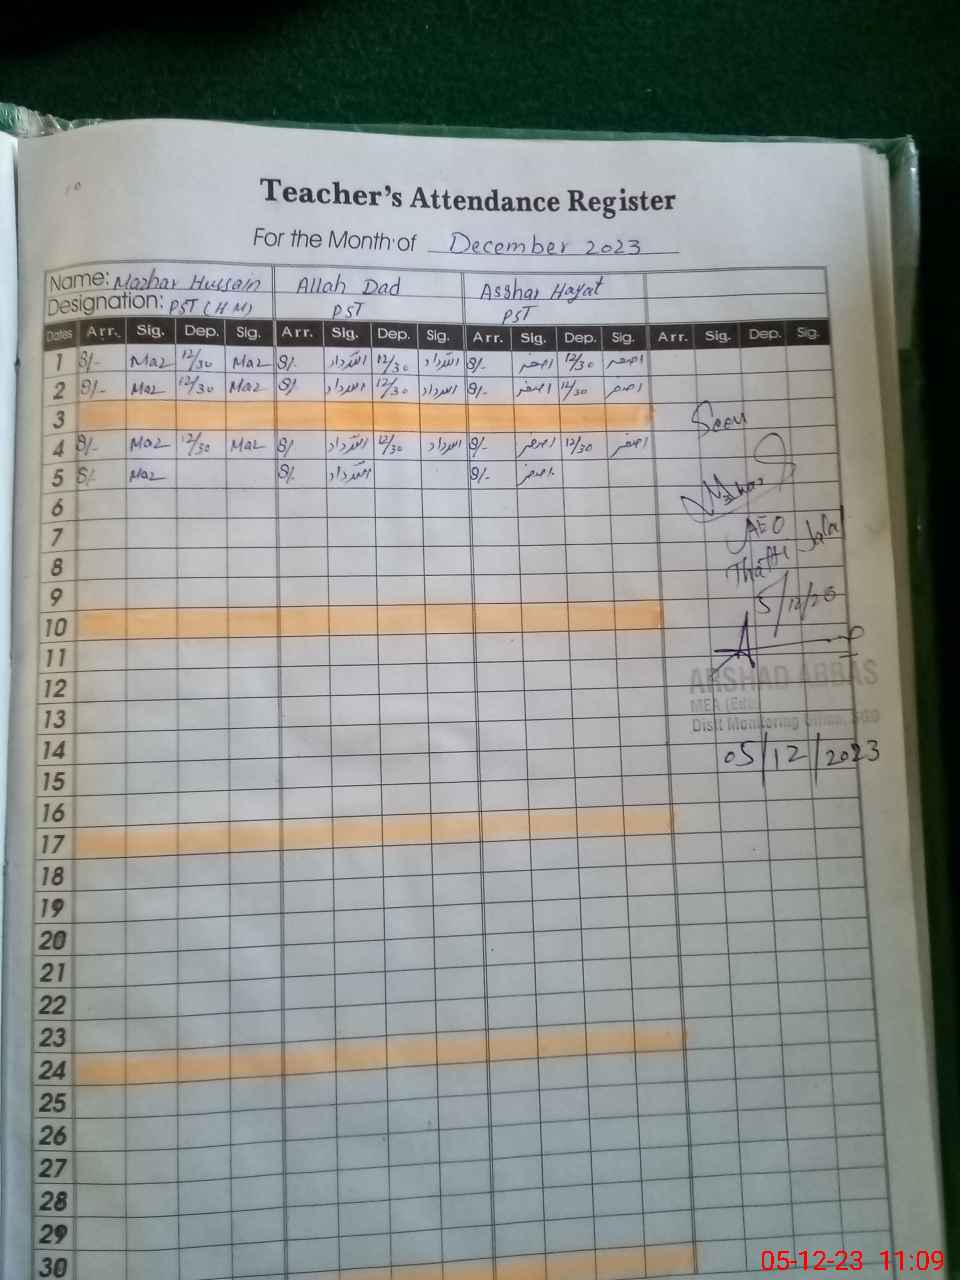 Teacher's Attendance Register
For the Month of December 2023
Name: Mazhar Hussain Allah Dad Asghar Hayat
Designation: PST (H.M) PST PST
Dates Arr. Sig. Dep. Sig. Arr. Sig. Dep. Sig. Arr. Sig. Dep. Sig. Arr. Sig. Dep. Sig.
1 8/- Maz 12/30 Maz 8/ اللہ داد 12/30 اللہ داد 8/- اصغر 12/30 اصغر
2 8/- Maz 12/30 Maz 8/ اللہ داد 12/30 اللہ داد 8/- اصغر 12/30 اصغر
3
Seen
4 8/- Maz 12/30 Maz 8/ اللہ داد 12/30 اللہ داد 8/- اصغر 12/30 اصغر
5 8/- Maz 8/- اللہ داد 8/- اصغر
6
7
AEO
8
Thatti Jalal
9
10
11
12
ARSHAD ABBAS
MEA (Edu)
13
Distt Monitoring Office, SGD
14
05/12/2023
15
16
17
18
19
20
21
22
23
24
25
26
27
28
29
30
05-12-23 11:09